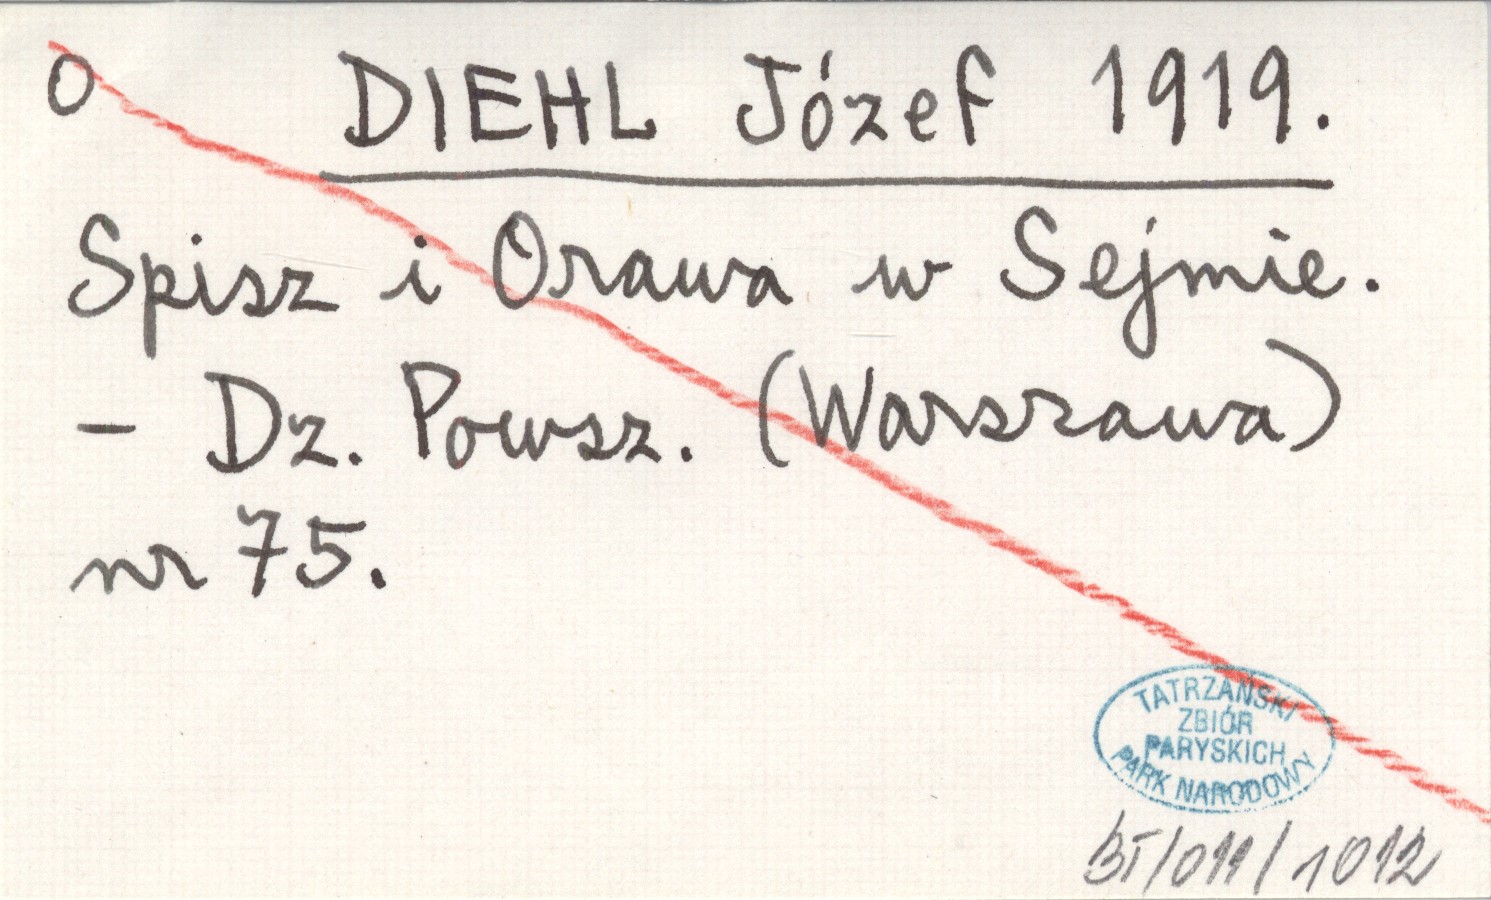 O DIEHL Józef 1919.
Spisz i Orawa w Sejmie.
- Dz. Powsz. (Warszawa)
nr 75.
TATRZAŃSKI
ZBIÓR
PARYSKICH
PARK NARODOWY
/011/1012